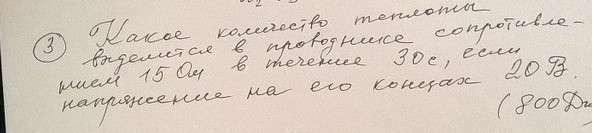 ③ Какое количество теплоты
выделится в проводнике сопротивле-
нием 15 Ом в течение 30 с, если
напряжение на его концах 20 В.
(800 Дж